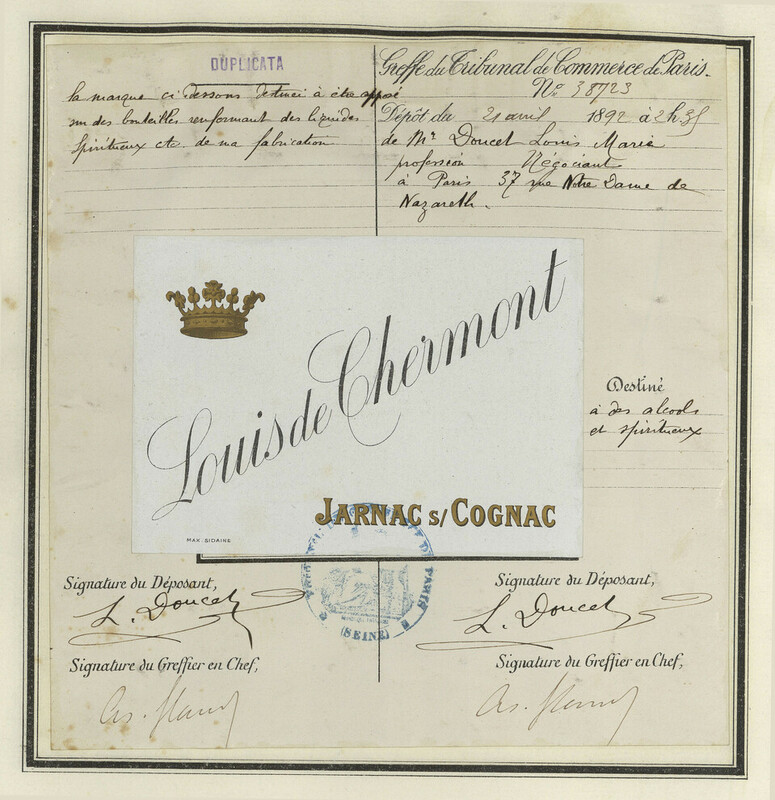 DUPLICATA
la marque ci dessous destinée à être apposé
sur des bouteilles renfermant des liquides
spiritueux etc. de ma fabrication
Greffe du Tribunal de Commerce de Paris.
No 38723
Dépôt du 21 avril 1892 à 2h.35
de Mr Doucet Louis Marie
profession Négociant
à Paris 37 rue Notre Dame de
Nazareth.
Louis de Chermont
JARNAC S/ COGNAC
MAX. SIDAINE
Destiné
à des alcools
et spiritueux
DE PARIS
(SEINE)
Signature du Déposant,
L. Doucet
Signature du Greffier en Chef,
Signature du Déposant,
L. Doucet
Signature du Greffier en Chef,